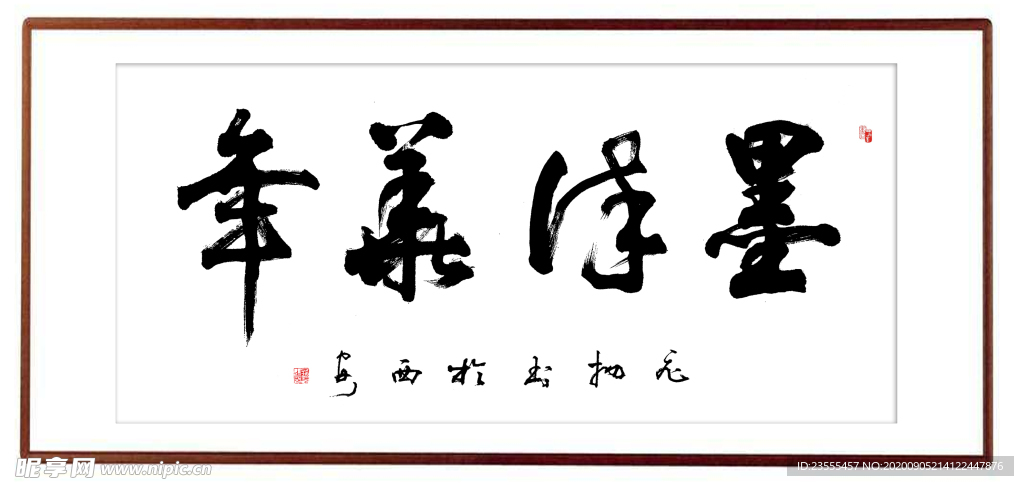 墨澤華年
书於西安
昵享网 www.nipic.cn
ID:23555457 NO:20200905214122447876